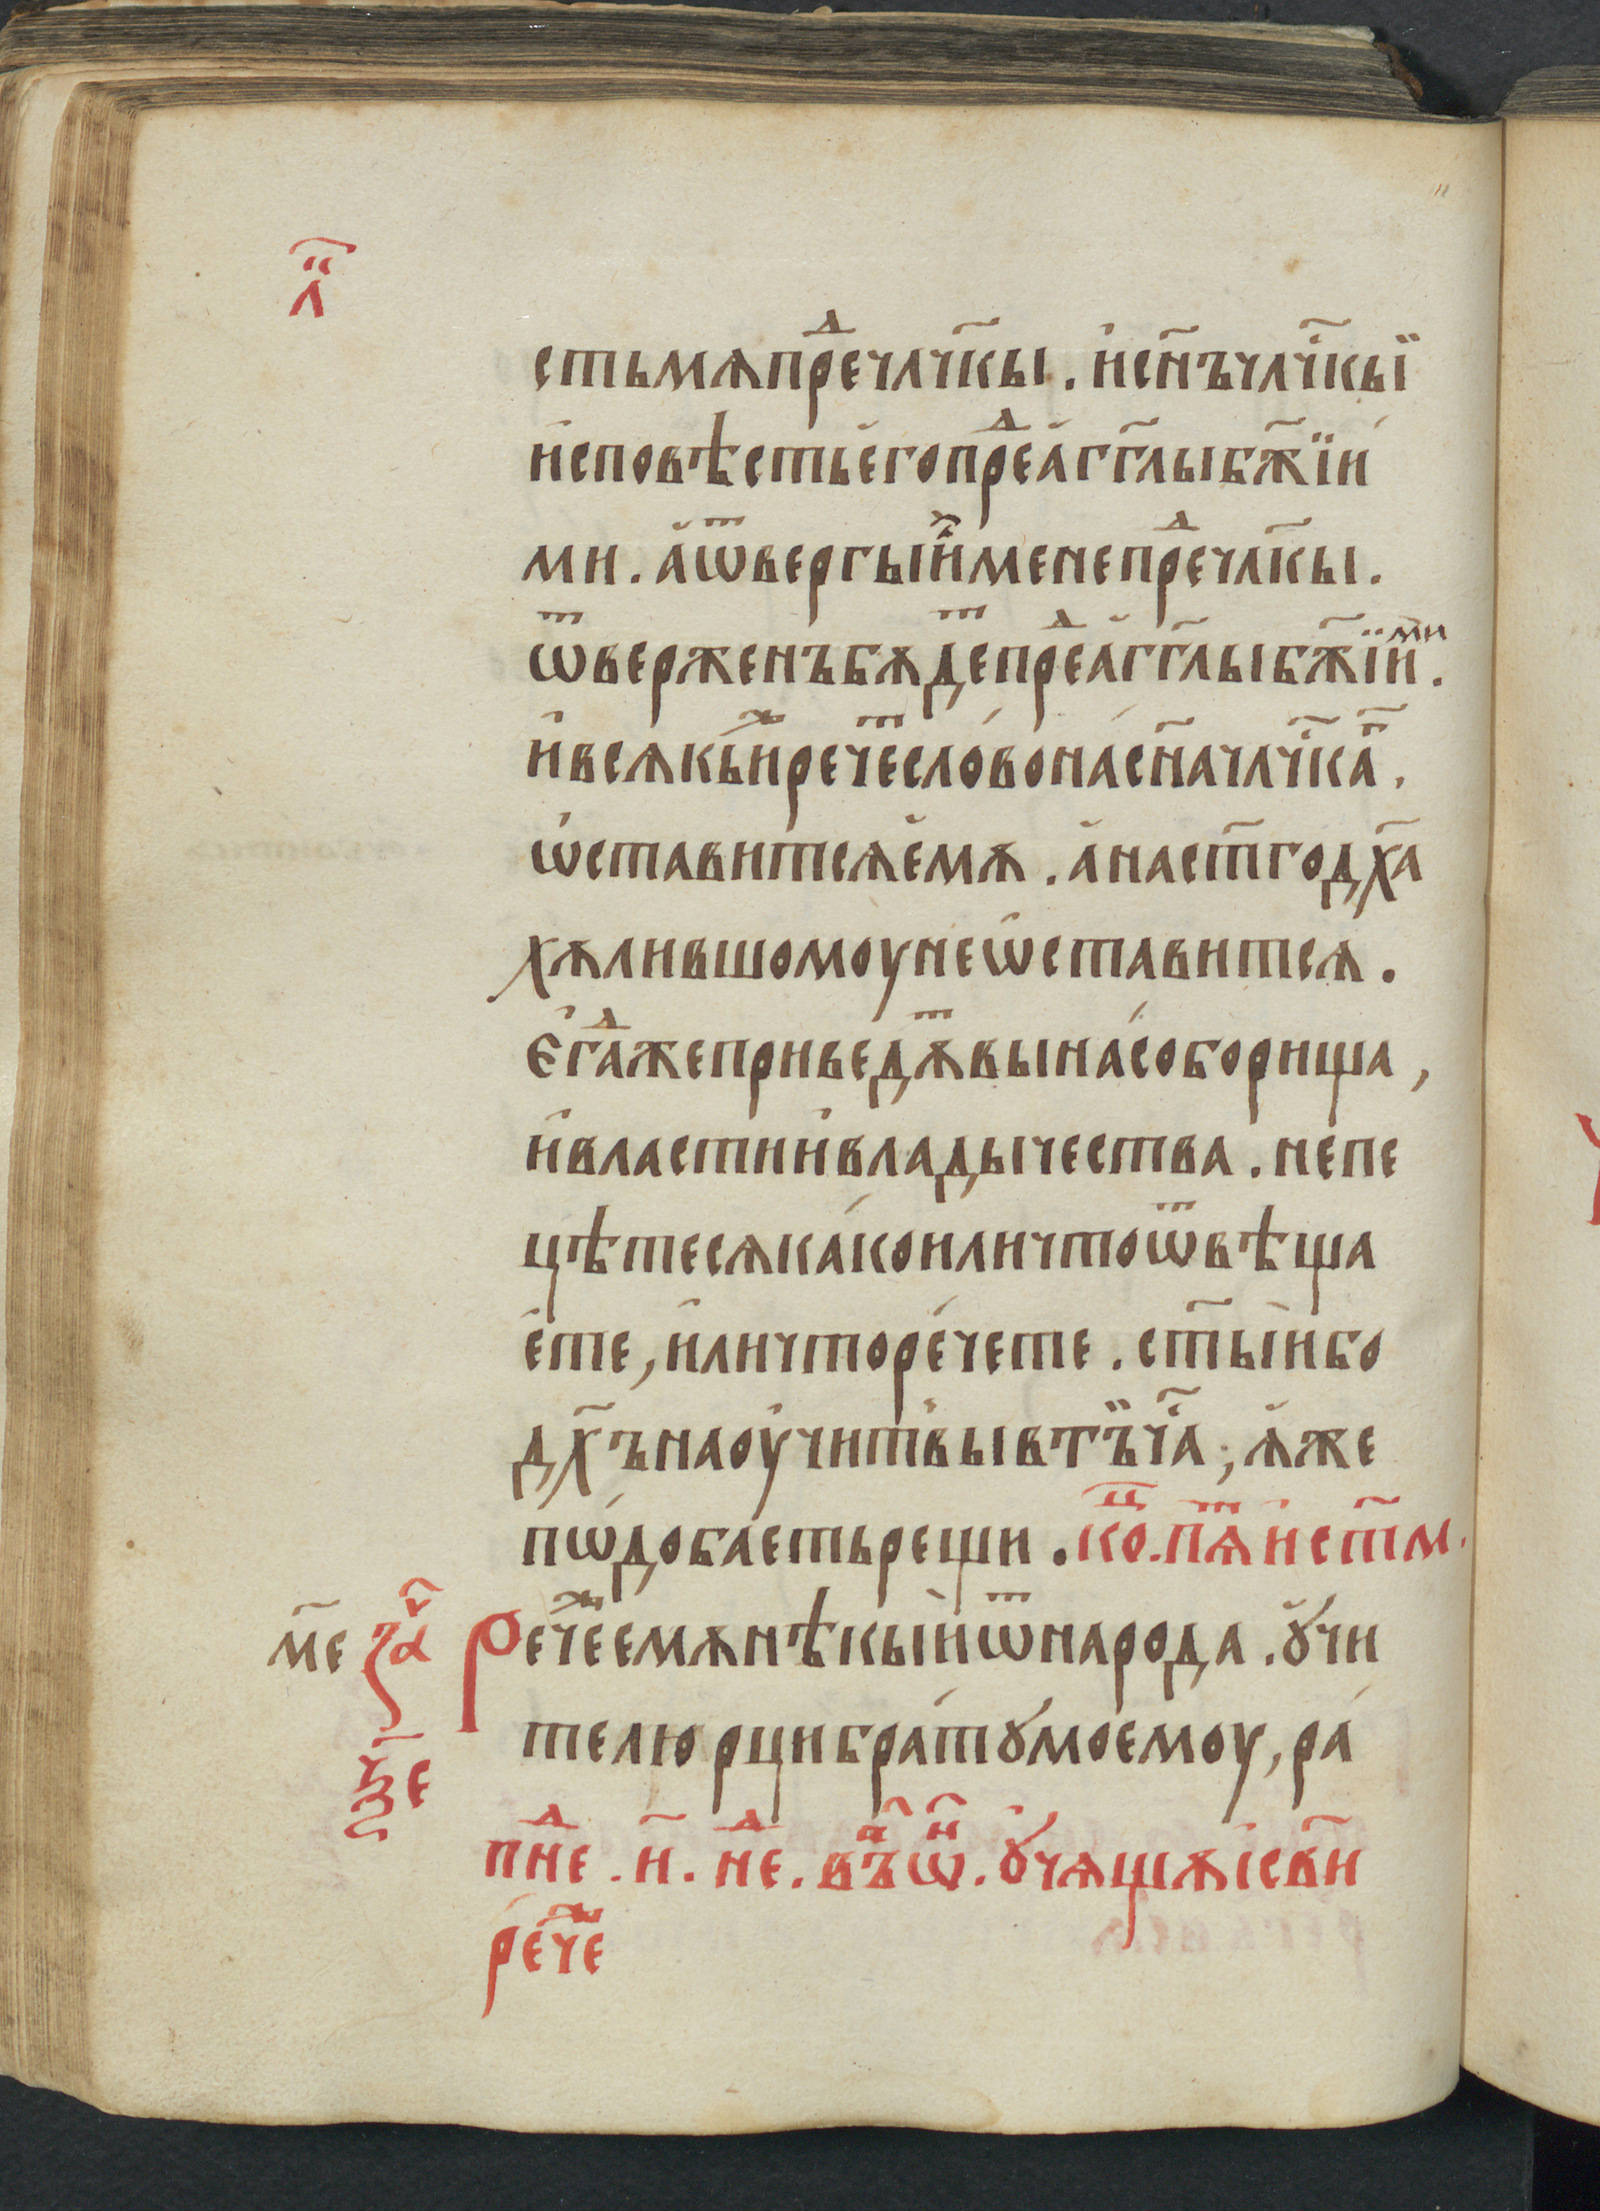 л҃
стьмѧпрⷣечл҃чкы. и҆сн҃ъчл҃чкыї
и҆сповѣстье҆гопрⷣеа҆гг҃лыбж҃їи
ми. а҆ѿвергыи҆ⷤменепрⷣечл҃кы.
ѿверженъбѫдⷮепрⷣеа҆гг҃лыбж҃їиⷨи.
и҆всѧкы́иⷤречеⷮсло́вона́сн҃ачл҃чкаⷢ҇.
ѡ҆ставитсѧе҆мѫ. а҆наст҃годх҃а
хѫлившомоунеѡ҆ставитсѧ.
Е҆гдⷣажепр́иведѫⷮвына́соборища,
и҆властии҆владычества. непе
цѣтесѧка́коиличтоѿвѣща
е҆те, и҆личторе́чете. ст҃ы́ибо
дх҃ънаоу҆читⷮвывтъ҃ⷱ҇їа; ꙗ҆же
пѡ́доба́етьрещи. коⷰ҇. пѧⷮи҆ст҃м.
м҃е заⷱ҇ Рⷤечеемѫнѣкыиѿнарода. ꙋ҆чи
телюрциб́ратꙋ́моемоу, ра́
ѯ҃е
пнⷣе. и҃. неⷣ. въⷧ҇ѡⷩ҇. ꙋ҆чѧщѫі҆св҃и
ре́чеⷤ